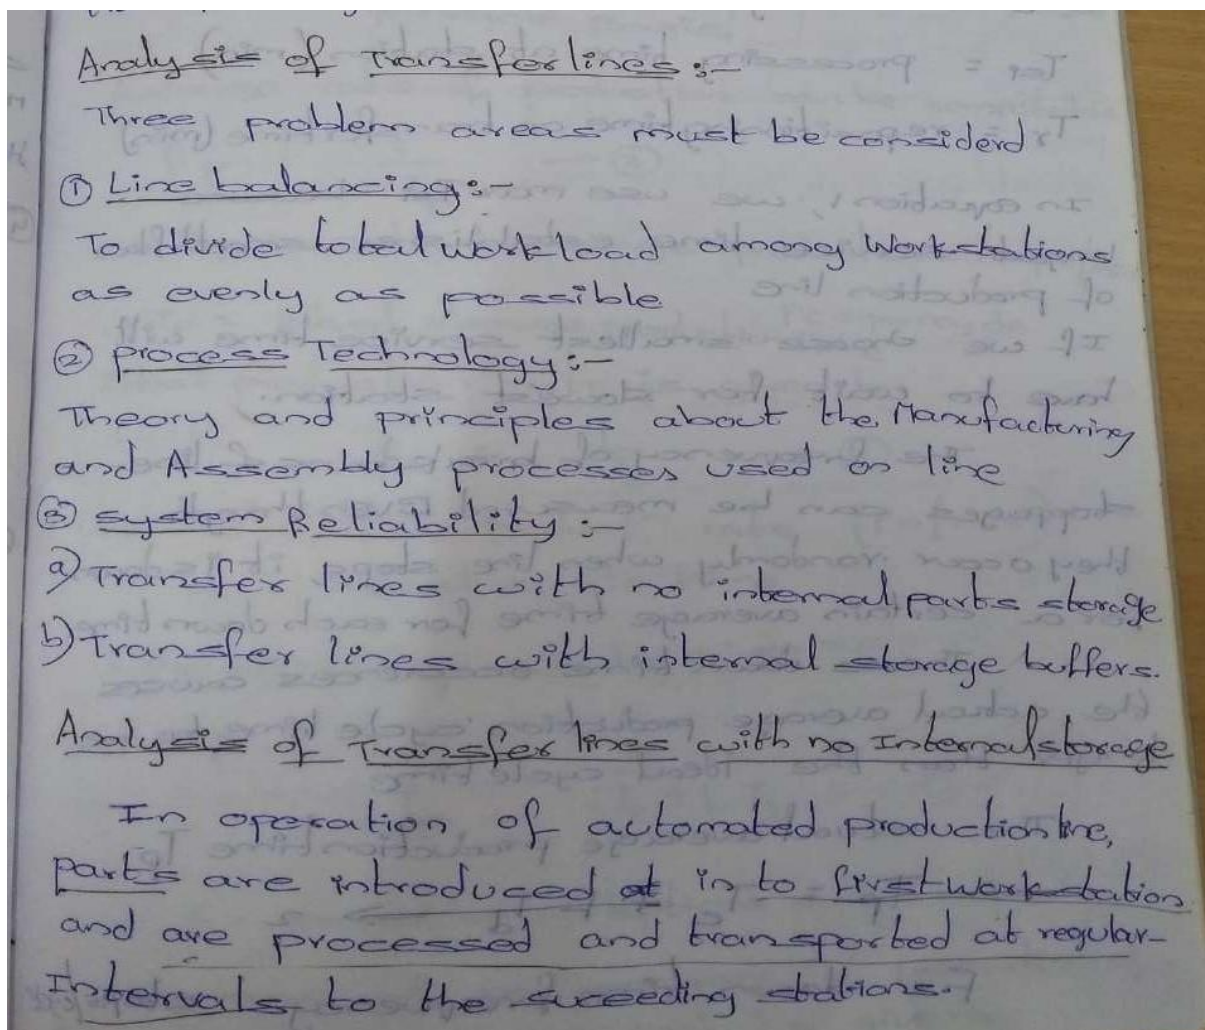 Analysis of Transfer lines :-
Three problem areas must be considerd
① Line balancing :-
To divide total work load among Workstations
as evenly as possible
② process Technology :-
Theory and principles about the Manufacturing
and Assembly processes used on line
③ system Reliability :-
a) Transfer lines with no internal parts storage
b) Transfer lines with internal storage buffers.
Analysis of Transfer lines with no Internal storage
In operation of automated production line,
parts are introduced at in to first work station
and are processed and transported at regular-
Intervals to the suceeding stations.